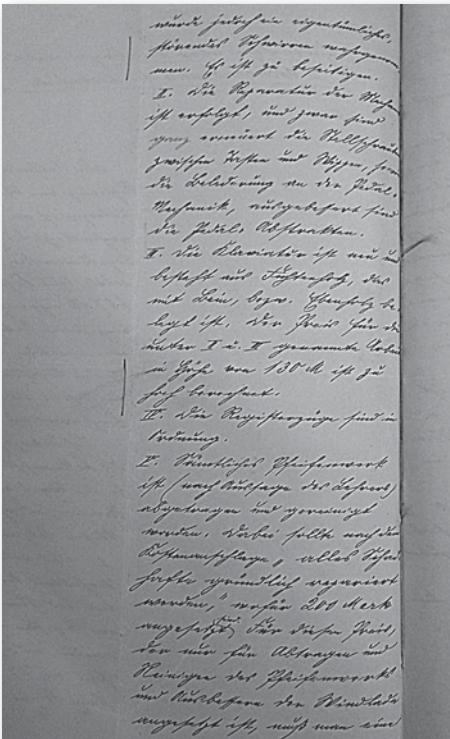 wurde jedoch ein eigentümliches,
störendes Schwirren wahrgenom
men. Es ist zu beseitigen.
II. Die Reparatur der Mechan
ist erfolgt, und zwar sind
ganz erneuert die Stellschraub
zwischen Tasten und Wippen, fern
die Belederung an der Pedal-
Mechanik, ausgebessert sind
die Pedal-Abstrakten.
III. Die Klaviatur ist neu und
besteht aus Fichtenholz, das
mit Bein, bezw. Ebenholz be-
legt ist. Der Preis für die
unter II u. III genannte Arbei
in Höhe von 130 M ist zu
hoch berechnet.
IV. Die Registerzüge sind in
Ordnung.
V. Sämtliches Pfeifenwerk
ist (nach Aussage des Lehrers)
abgetragen und gereinigt
worden. Dabei sollte nach dem
Kostenanschlage „alles Schad
hafte gründlich repariert
werden," wofür 200 Mark
angesetzt sind. Für diesen Preis,
der nur für Abtragen und
Reinigen des Pfeifenwerks
und Ausbessern der Windlade
angesetzt ist, muß man eine